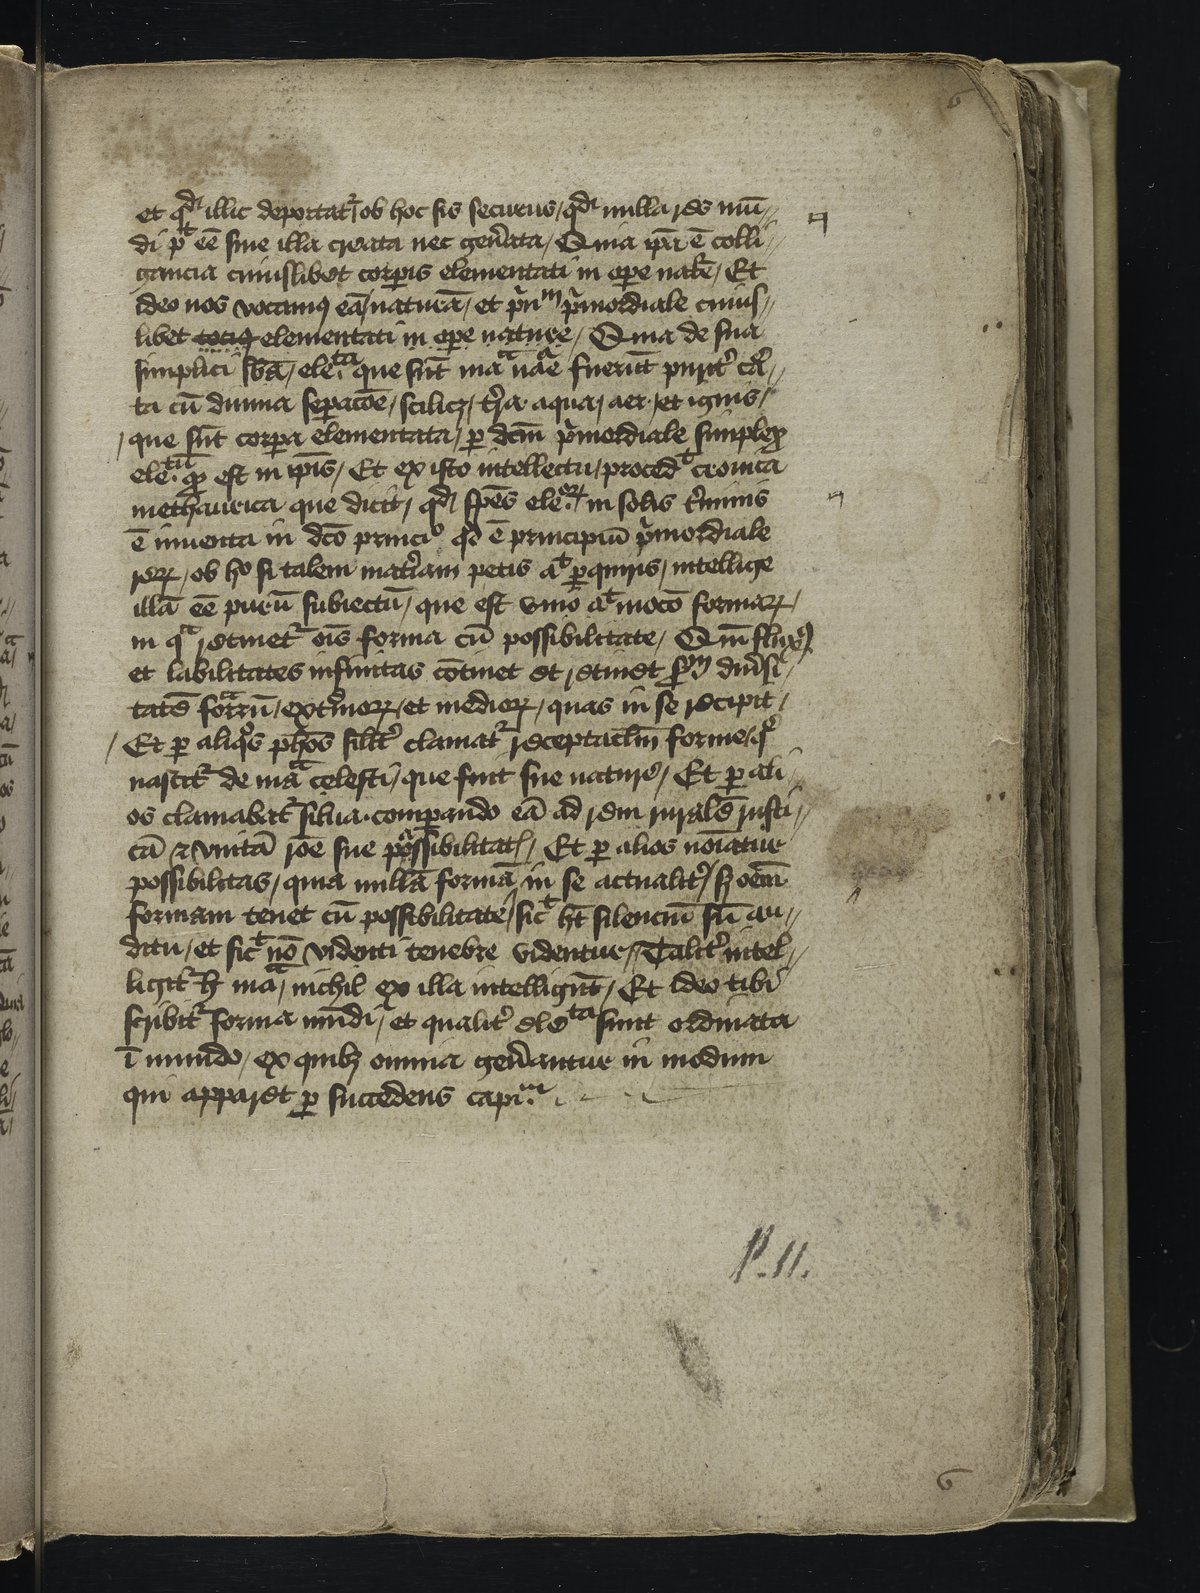 6
et qđ illic deportat᷑ / ob hoc sis securus / qđ nulla res mū //
di pͭ eē sine illa creata nec gen̄ata / Quia ip̄a ē colli //
gancia cuiuslibet corꝑis elementati in oꝑe nat᷑e / Et
ideo nos vocamꝰ eā / naturā / et pⁱn̄ᵐ pⁱmordiale cuius //
libet totiꝰ elementati in oꝑe nature / Quia de sua
simplici sb̄a / ele.ᵗᵃ que sūt maᵃ n̄ae fuerūt purit᷑ cͣa //
ta cū diuina seꝑacōe / scilicꝫ / t᷑ra aqua / aer / et ignis /
/ que sūt corꝑa elementata / ꝑ dc̄m pⁱmordiale simplex
ele.ᵗū ꝙ est in ip̄is / Et ex isto intellectu / procedͭ cronica
methaurica que dicit / qđ sp̄es ele.oꝝ in solis t᷑minis
ē inuenta in dc̄o princiᵒ qđ ē principiū pⁱmordiale
reꝝ / ob hͦ si talem mat᷑iam petis aͭ ꝑquiris / intellige
illā eē purū subiectū / que est vnio aͭ mocō formaꝝ /
in qͣ retinet᷑ oīs forma cū possibilitate / Qm̄ fluxꝰ
et labilitates infinitas cōtinet et retinet ẜm diu᷑si /
tatē forͣrū / ext᷑moꝝ / et medioꝝ / quas in se recipit /
/ Et ꝑ aliqͦs ph̄os silit᷑ clamat᷑ receptaclm̄ forme / qͤ
nascit᷑ de maᵃ celesti / que fuit sue nature / Et ꝑ ali /
os clamabat᷑ silua. comꝑando eā ad rem ruralē rusti //
cā ⁊ vnitā rōe sue possibilitatꝭ / Et ꝑ alios noīatur
possibilitas / quia nullā formā in se actualit᷑ / sꝫ oēm
formam tenet cū possibilitate / sicͭ hͭ silenciū sū au //
ditu / et sicͭ nō videnti tenebre videntur // Talit᷑ intel //
ligit᷑ h̄ maᵃ / nichil ex illa intelligūt / Et ideo tibi
scribit᷑ forma mūdi / et qualit᷑ eleᵗᵃ sunt ordinata
ī mundo / ex quibꝫ omnia gen̄antur in modum
qui apparet ꝑ succedens capi.ᵐ
P. 11.
6